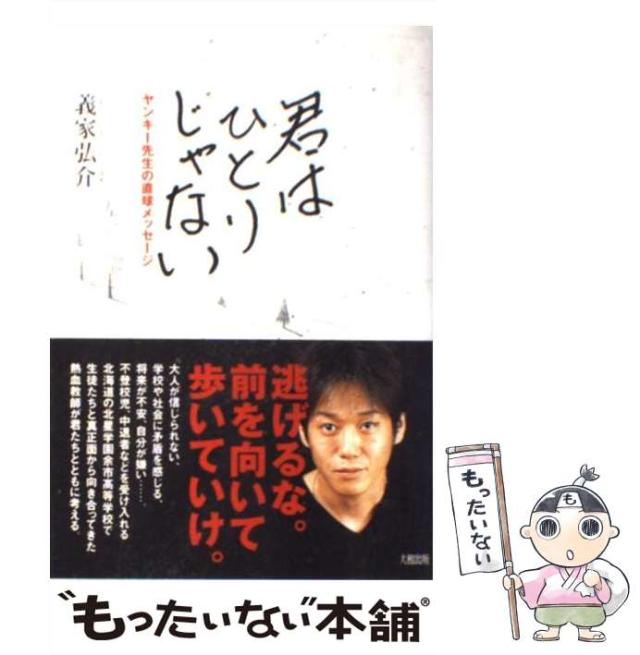 君は
ひとり
じゃない
ヤンキー先生の直球メッセージ
義家弘介
逃げるな。
前を向いて
歩いていけ。
大人が信じられない、
学校や社会に矛盾を感じる、
将来が不安、自分が嫌い……。
不登校児、中退者などを受け入れる
北海道の北星学園余市高等学校で
生徒たちと真正面から向き合ってきた
熱血教師が君たちとともに考える。
大和出版
も
もったいない
"もったいない"本舗®